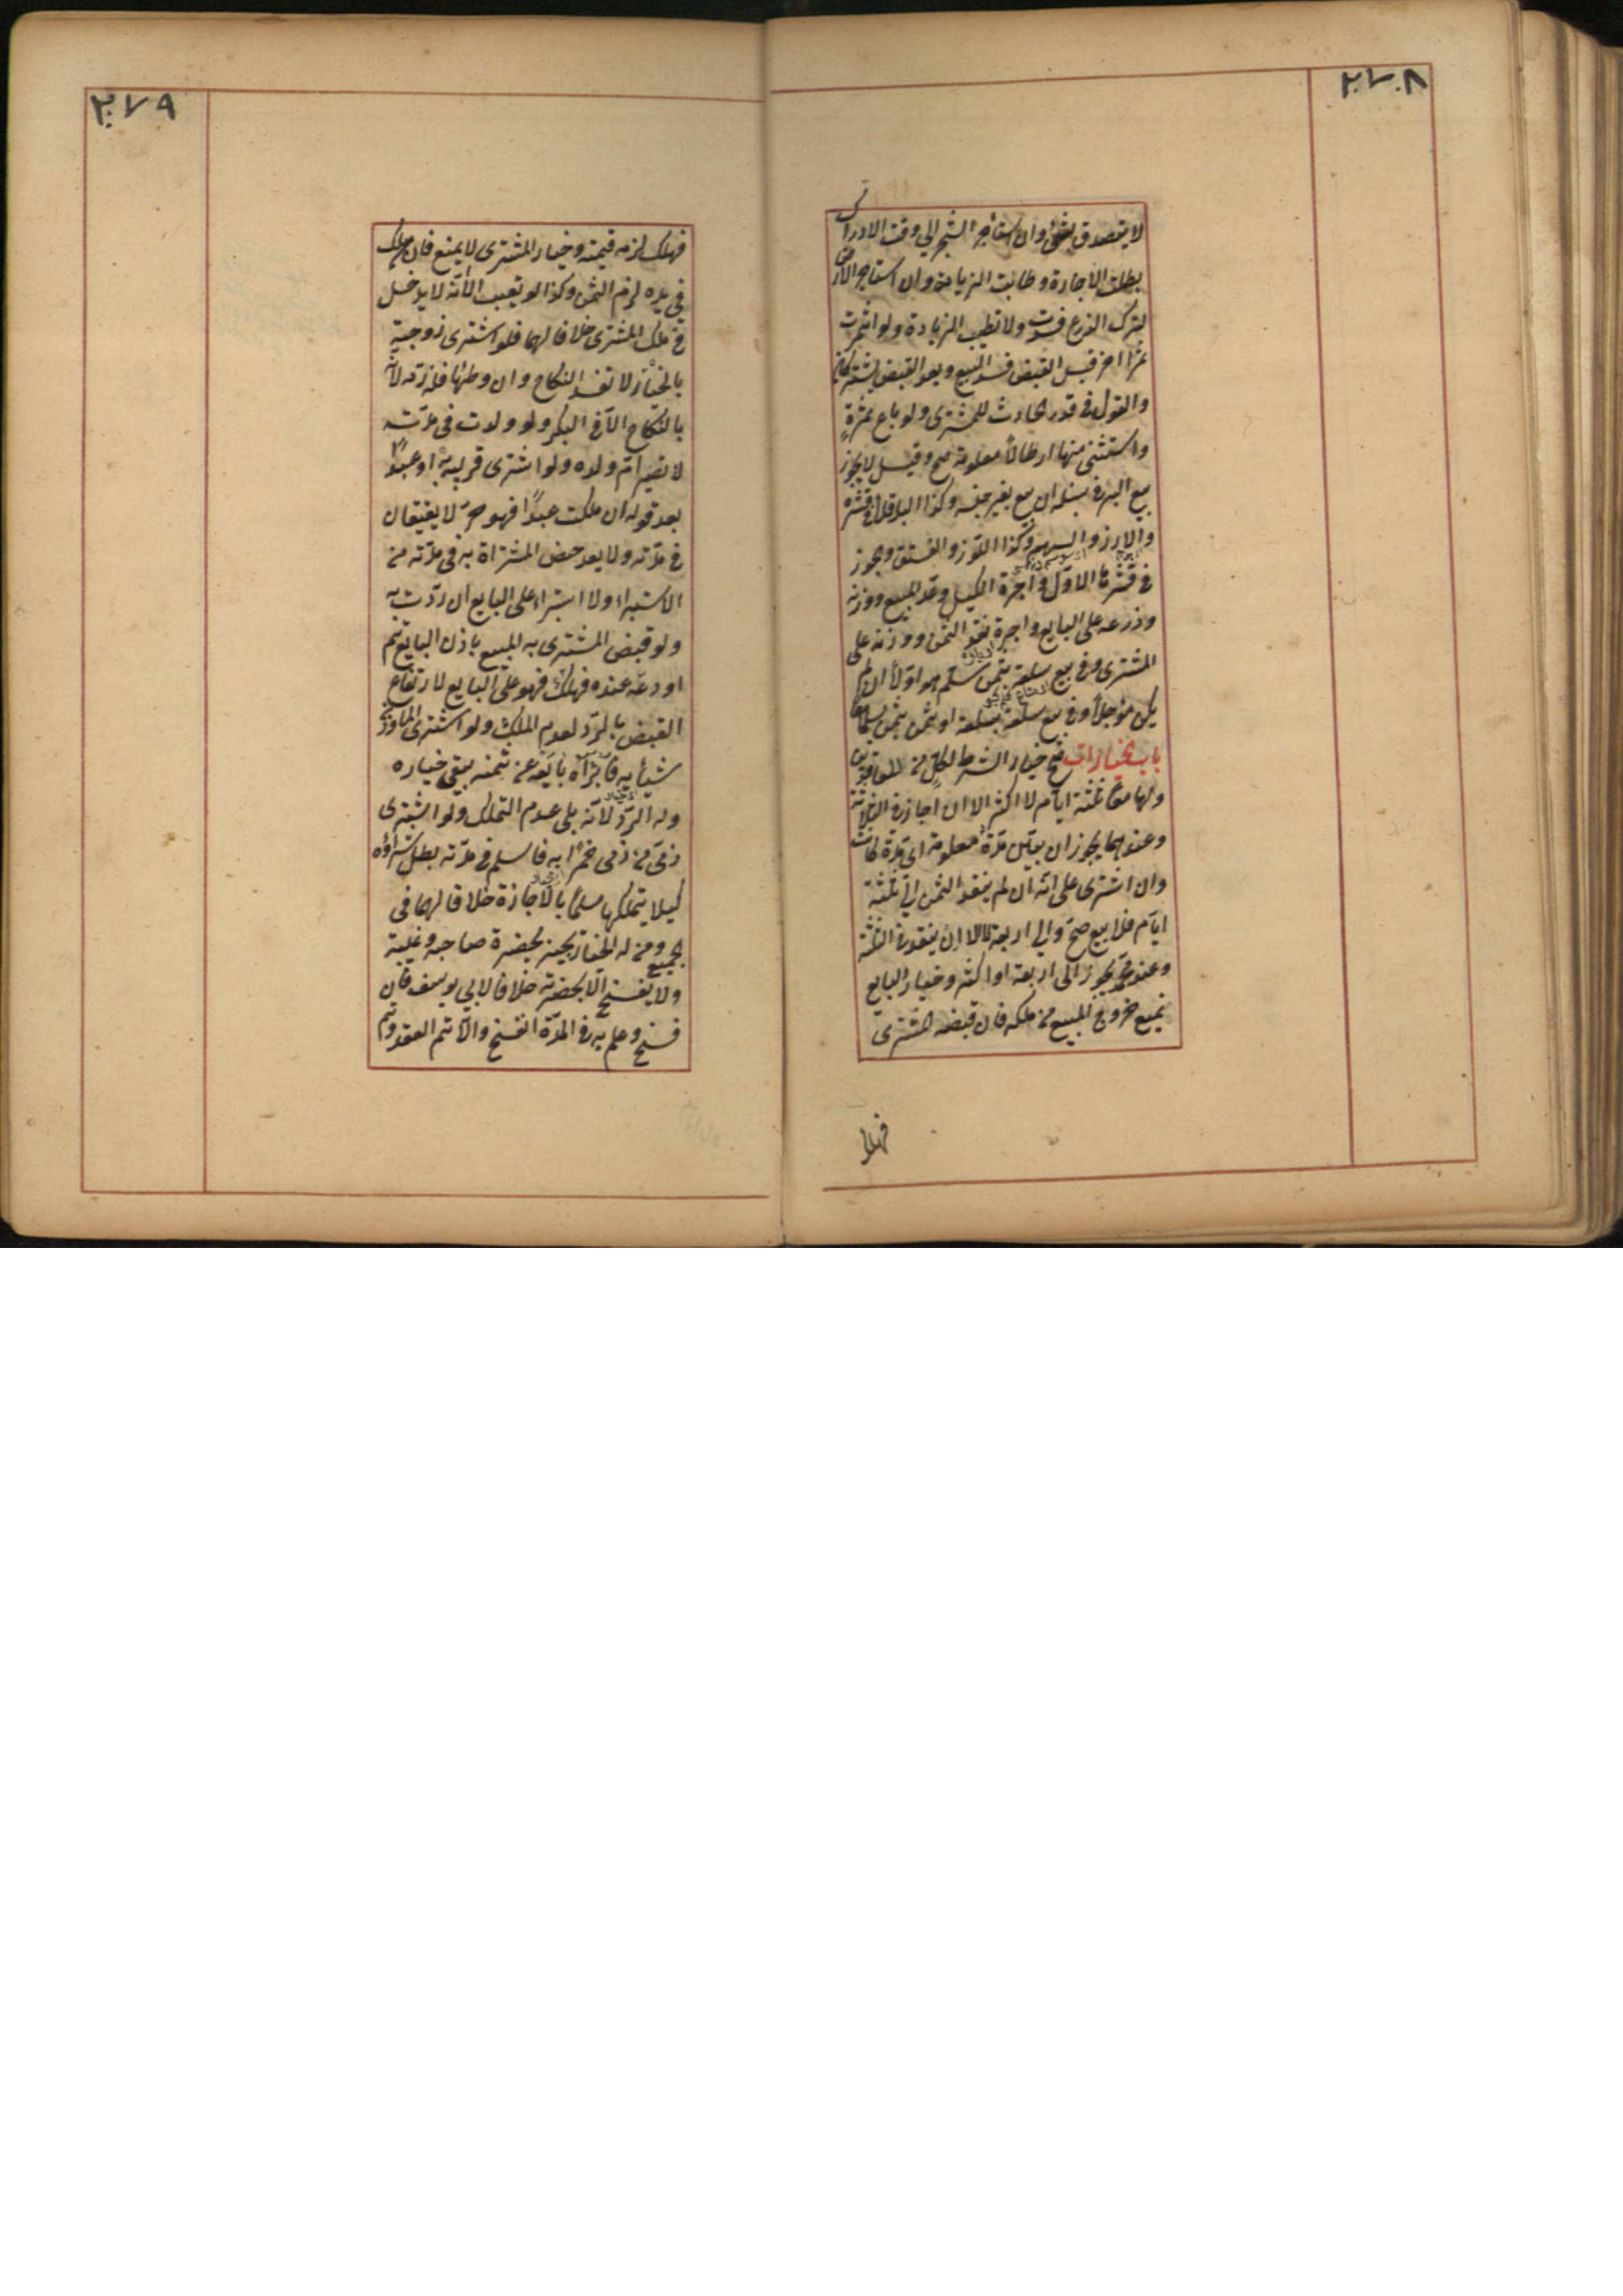 ٢٧٨
لا يتصدق بشئ وان استأجر الشجر الي وقت الادراك
بطلت الاجارة وطابت الزيادة وان استاجر الارض
لترك الزرع فسدت ولا تطيب الزيادة ولو اثمرت
ثمرًا اخر قبل القبض فسد البيع وبعد القبض يشتركان
والقول في قدر الحادث للمشترى ولو باع ثمرةٍ
واستثنى منها ارطالاً معلومة صح وقيل لا يجوز
بيع البر في سنبله ان بيع بغير جنسه وكذا الباقلاء في قشره
والارز والسمسم وكذا اللوز والفستق ويجوز
في قشرها الاول واجرة الكيل وعد المبيع ووزنه
وذرعه على البايع واجرة نقد الثمن ووزنه على
المشترى وفي بيع سلعة بثمن سلم هو اولاً ان لم
يكن مؤجلاً وفي بيع سلعة بسلعة او ثمن بثمن سلما معًا
باب الخيارات صح خيار الشرط لكل من المتعاقدين
ولهما معًا ثلثة ايام لا اكثر الا ان اجاز في الثلاثة
وعندهما يجوز ان بيّن مدّة معلومة اى مدة كانت
وان اشترى على انه ان لم ينقد الثمن الي ثلثة
ايام فلا بيع صحّ والي اربعة لا الا ان ينقد في الثلثة
وعند محمد يجوز الى اربعة او اكثر وخيار البايع
يمنع خروج المبيع من ملكه فان قبضه المشترى
فهلك
٢٧٩
فهلك لزمه قيمته وخيار المشترى لا يمنع فان هلك
في يده لزم الثمن وكذا لو تعيب الا انه لا يدخل
في ملك المشترى خلافا لهما فلو اشترى زوجته
بالخيار لا تفسد النكاح وان وطئها فله ردّه لانه
بالنكاح الا في البكر ولو ولدت في مدّته
لا تصير ام ولده ولو اشترى قريبه او عبدًا
بعد قوله ان ملكت عبدًا فهو حرّ لا يعتقان
في مدّته ولا يعد حيض المشتراة به في مدّته من
الاستبراء ولا استبراء على البايع ان ردّت به
ولو قبض المشترى به المبيع باذن البايع ثم
اودعه عنده فهلك فهو على البايع لارتفاع
القبض بالردّ لعدم الملك ولو اشترى المأذون
شيئًا به فابرأه بايعه عن ثمنه يبقى خياره
وله الردّ لانه يلى عدم التملك ولو اشترى
ذمّى من ذمى خمرًا به فاسلم في مدّته بطل شراؤه
كيلا يتملكها مسلمًا بالاجازة خلافا لهما في
الجميع ومن له الخيار يجيز بحضرة صاحبه وغيبته
ولا يفسخ الّا بحضرته خلافا لابي يوسف فان
فسخ وعلم به في المدّة انفسخ والّا تم العقد ويتم